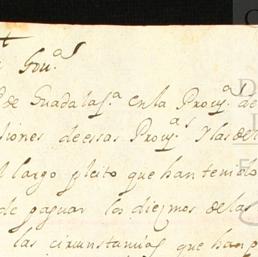 Gou.ᵃˢ
de Guadalaj.ᵃ en la Prou.ᵃ de
siones de essas Prou.ᵃˢ y las de
el largo pleito que han tenido
de pagar los diezmos de las
las circunstancias que han p